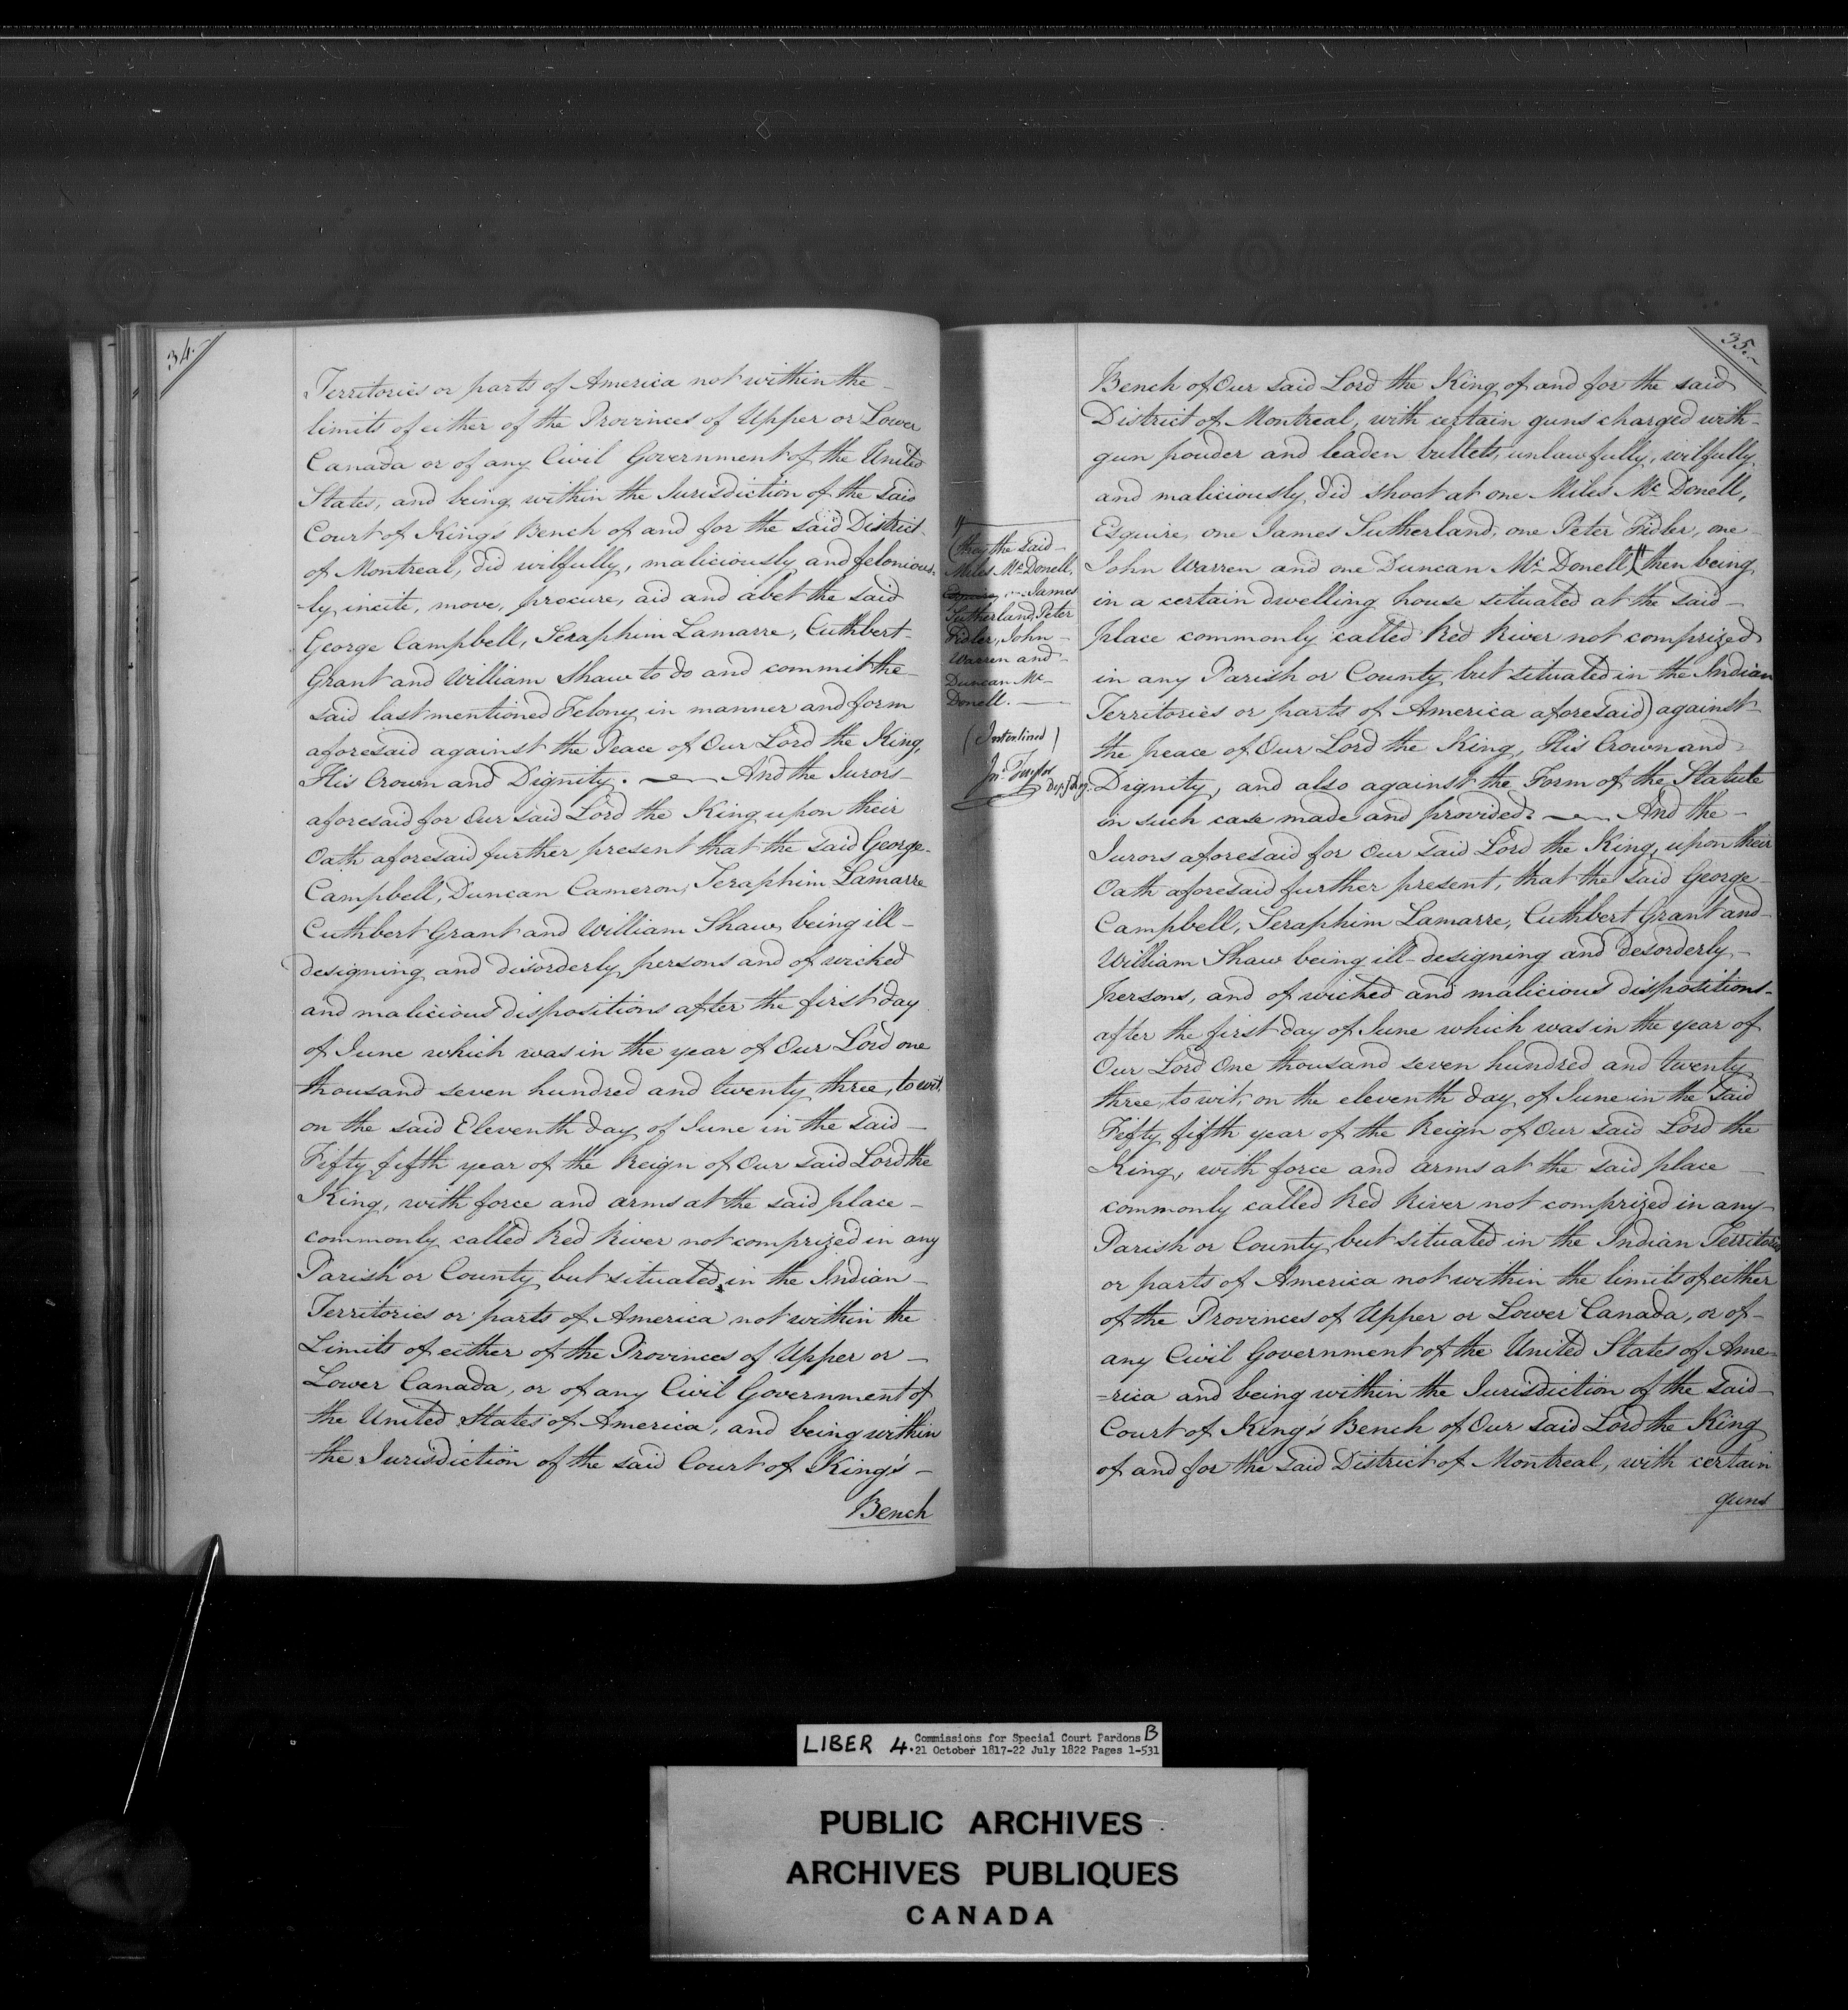 34.
Territories or parts of America not within the
limits of either of the Provinces of Upper or Lower
Canada or of any Civil Government of the United
States, and being within the Jurisdiction of the said
Court of King's Bench of and for the said District
of Montreal, did wilfully, maliciously and felonious-
=ly, incite, move, procure, aid and abet the said
George Campbell, Seraphim Lamarre, Cuthbert
Grant and William Shaw to do and commit the
said last mentioned Felony in manner and form
aforesaid against the Peace of Our Lord the King,
His Crown and Dignity. — And the Jurors
aforesaid for Our said Lord the King upon their
Oath aforesaid further present that the said George
Campbell, Duncan Cameron, Seraphim Lamarre
Cuthbert Grant and William Shaw, being ill-
designing and disorderly persons and of wicked
and malicious dispositions after the first day
of June which was in the year of Our Lord one
thousand seven hundred and twenty three, to wit,
on the said Eleventh day of June in the said
Fifty fifth year of the Reign of Our said Lord the
King, with force and arms at the said place
commonly called Red River not comprized in any
Parish or County but situated in the Indian
Territories or parts of America not within the
Limits of either of the Provinces of Upper or
Lower Canada, or of any Civil Government of
the United States of America, and being within
the Jurisdiction of the said Court of King's
Bench
35.
Bench of Our said Lord the King of and for the said
District of Montreal, with certain guns charged with
gun pouder and leaden bullets, unlawfully, wilfully
and maliciously did shoot at one Miles Mc Donell,
Esquire, one James Sutherland, one Peter Fidler, one
John Warren and one Duncan Mc Donell, # (then being
in a certain dwelling house situated at the said
place commonly called Red River not comprized
in any Parish or County but situated in the Indian
Territories or parts of America aforesaid) against
the peace of Our Lord the King, His Crown and
Dignity, and also against the Form of the Statute
in such case made and provided. — And the
Jurors aforesaid for Our said Lord the King, upon their
Oath aforesaid further present, that the said George
Campbell, Seraphim Lamarre, Cuthbert Grant and
William Shaw being ill-designing and desorderly
persons, and of wicked and malicious dispositions
after the first day of June which was in the year of
Our Lord One thousand seven hundred and twenty
three, to wit, on the eleventh day of June in the said
Fifty fifth year of the Reign of Our said Lord the
King, with force and arms at the said place
commonly called Red River not comprized in any
Parish or County but situated in the Indian Territories
or parts of America not within the limits of either
of the Provinces of Upper or Lower Canada, or of
any Civil Government of the United States of Ame=
=rica and being within the Jurisdiction of the said
Court of King's Bench of Our said Lord the King
of and for the said District of Montreal, with certain
guns
#
(they the said
Miles Mc Donell,
Esquire, James
Sutherland, Peter
Fidler, John
Warren and
Duncan Mc
Donell.
(Interlined)
Jn. Taylor
LIBER 4. Commissions for Special Court Pardons B
21 October 1817-22 July 1822 Pages 1-531
PUBLIC ARCHIVES
ARCHIVES PUBLIQUES
CANADA